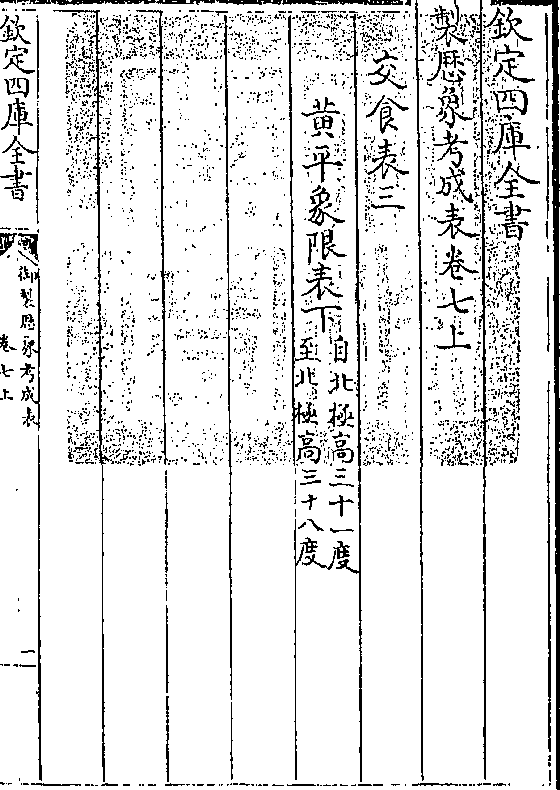 欽定四庫全書
製厯象考成表卷七上
交食表三
黄平象限表下
自北極高三十一度
至北極高三十八度
欽定四庫全書
御製厯象考成表
卷七上
一